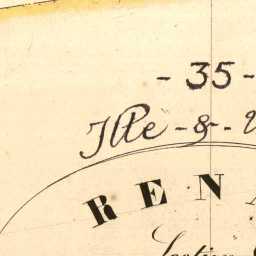 - 35 -
Ille - & -
REN
Section